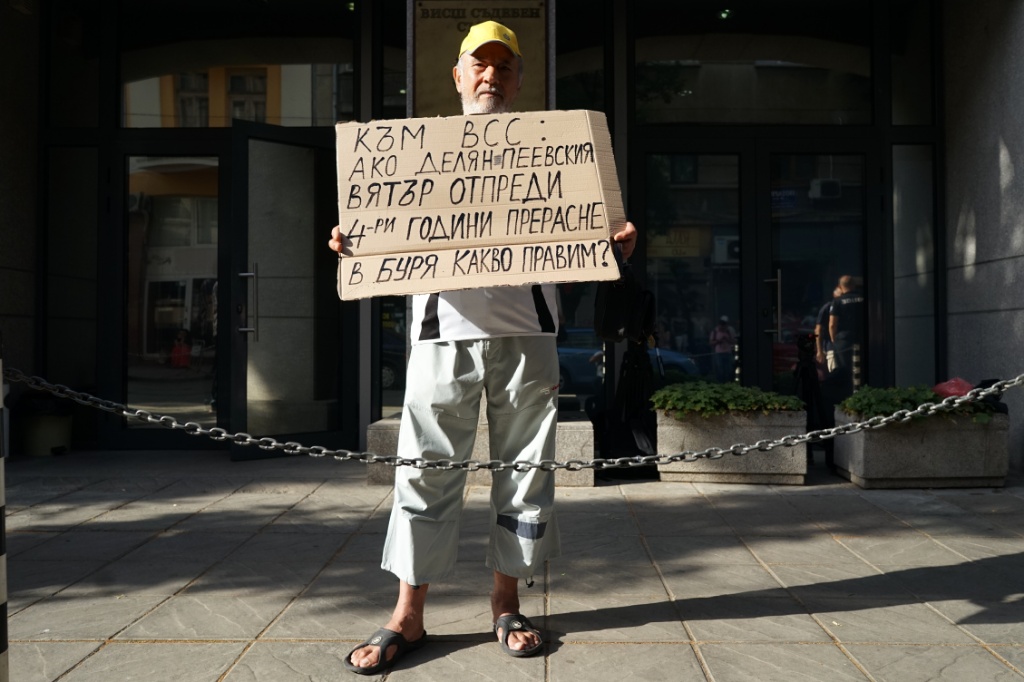 ВИСШ СЪДЕБЕН
КЪМ ВСС:
АКО ДЕЛЯН-ПЕЕВСКИЯ
ВЯТЪР ОТПРЕДИ
4-РИ ГОДИНИ ПРЕРАСНЕ
В БУРЯ КАКВО ПРАВИМ?